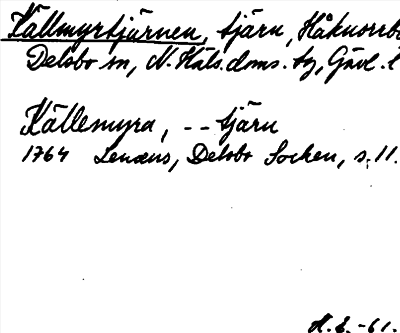 Källmyrtjärnen, tjärn, Håknorrbo
Delsbo sn, N. Häls. doms. tg, Gävl. l
Källemyra, -- tjärn
1764 Lenæus, Delsbo Socken, s. 11.
H. E. -61.